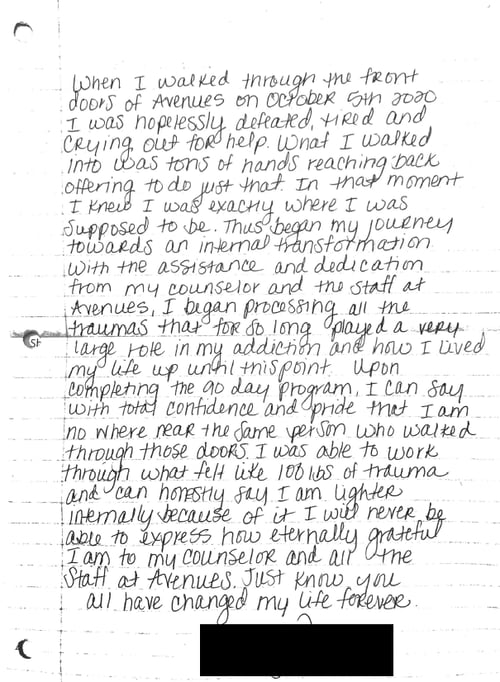 When I walked through the front
doors of Avenues on October 5th 2020
I was hopelessly defeated, tired and
crying out for help. What I walked
into was tons of hands reaching back
offering to do just that. In that moment
I knew I was exactly where I was
supposed to be. Thus began my journey
towards an internal transformation
with the assistance and dedication
from my counselor and the staff at
Avenues, I began processing all the
traumas that for so long played a very
large role in my addiction and how I lived
my life up until this point. Upon
completing the 90 day program, I can say
with total confidence and pride that I am
no where near the same person who walked
through those doors. I was able to work
through what felt like 100 lbs of trauma
and can honestly say I am lighter
internally because of it I will never be
able to express how eternally grateful
I am to my counselor and all the
staff at Avenues. Just know you
all have changed my life forever.